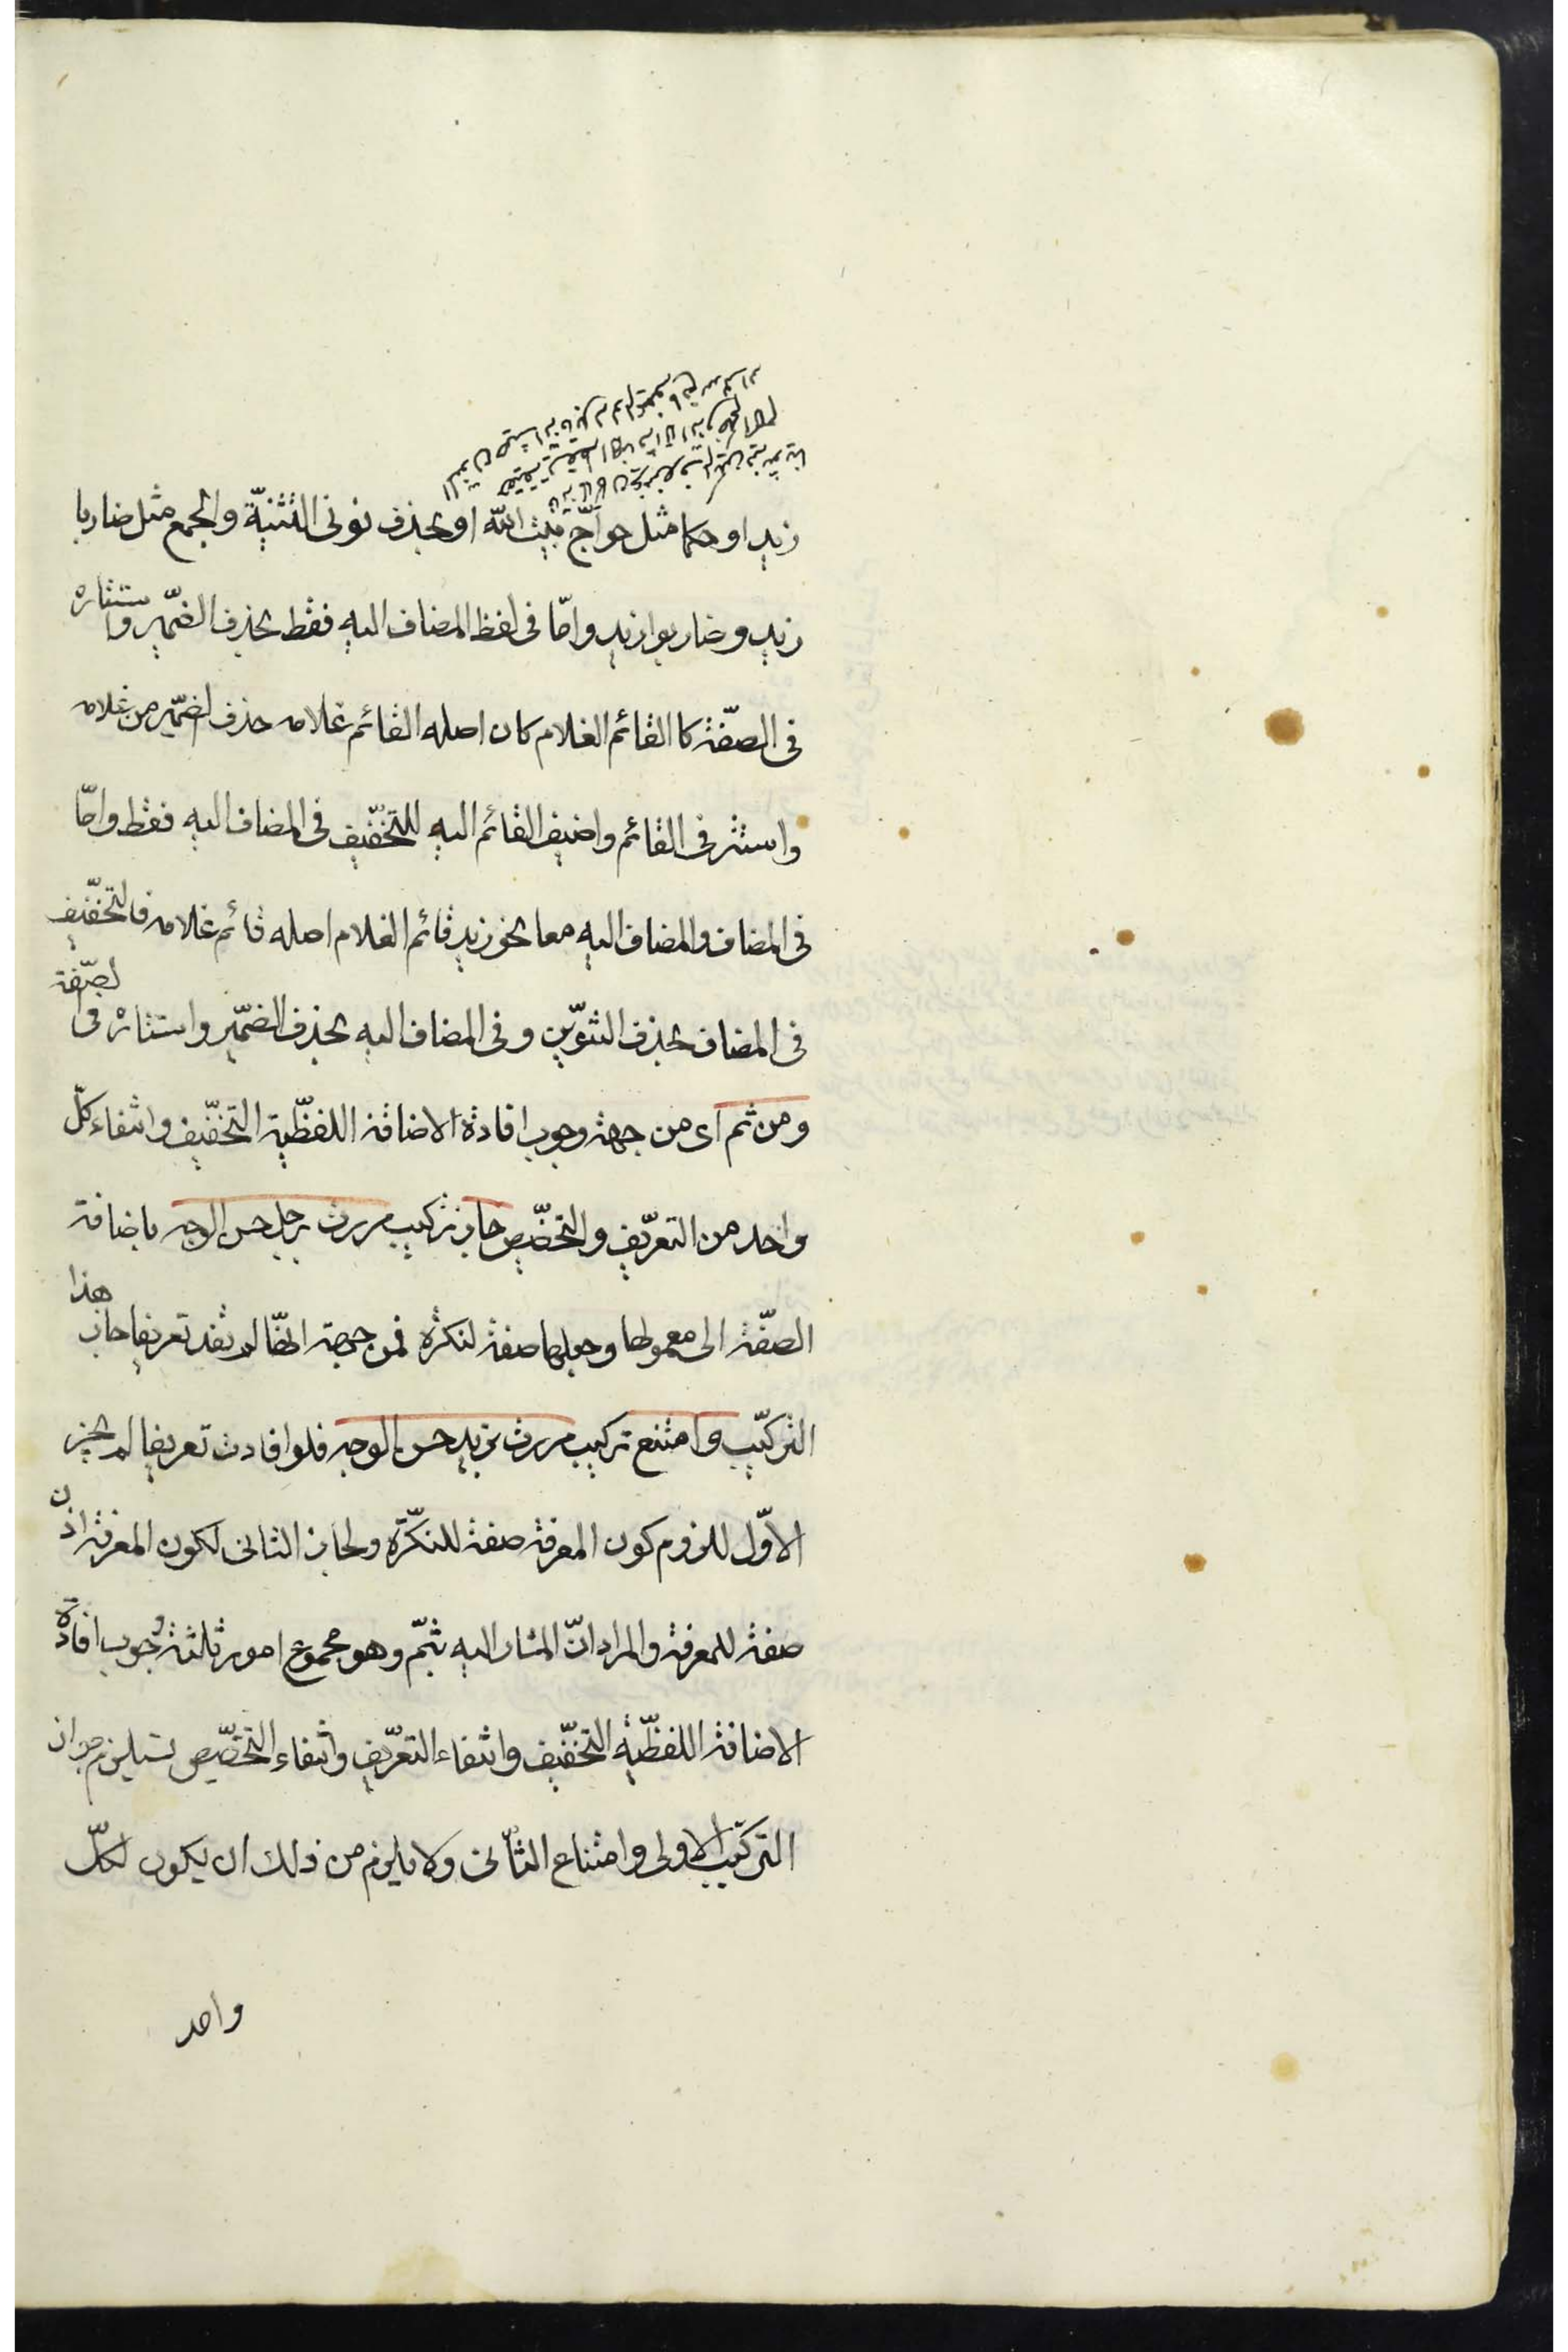 زيد او حكما مثل حواجّ بيت اللّه او بحذف نونى التثنية والجمع مثل ضاربا
زيد وضاربوا زيد وامّا فى لفظ المضاف اليه فقط بحذف الضمير واستتاره
فى الصفة كا القائم الغلام كان اصله القائم غلامه حذف الضمير من غلامه
واستتر فى القائم واضيف القائم اليه للتخفيف فى المضاف اليه فقط وامّا
فى المضاف والمضاف اليه معا نحو زيد قائم الغلام اصله قائم غلامه فالتخفيف
فى المضاف بحذف التنوين وفى المضاف اليه بحذف الضمير واستتاره فى الصفة
ومن ثم اى من جهة وجوب افادة الاضافة اللفظية التخفيف وانتفاء كلّ
واحد من التعريف والتخصيص جاز تركيب مررت برجل حسن الوجه باضافة
الصفة الى معمولها وجعلها صفة لنكرة فمن جهة انها لم تفد تعريفا جاز هذا
التركيب وامتنع تركيب مررت بزيد حسن الوجه فلو افادت تعريفا لم يجز
الاوّل للزوم كون المعرفة صفة للنكرة ولجاز الثانى لكون المعرفة اذن
صفة للمعرفة والمراد انّ المشار اليه بثمّ وهو مجموع امور ثلثة وجوب افادة
الاضافة اللفظية التخفيف وانتفاء التعريف وانتفاء التخصيص يستلزم جواز
التركيب الاولى وامتناع الثانى ولا يلزم من ذلك ان يكون لكلّ
واحد